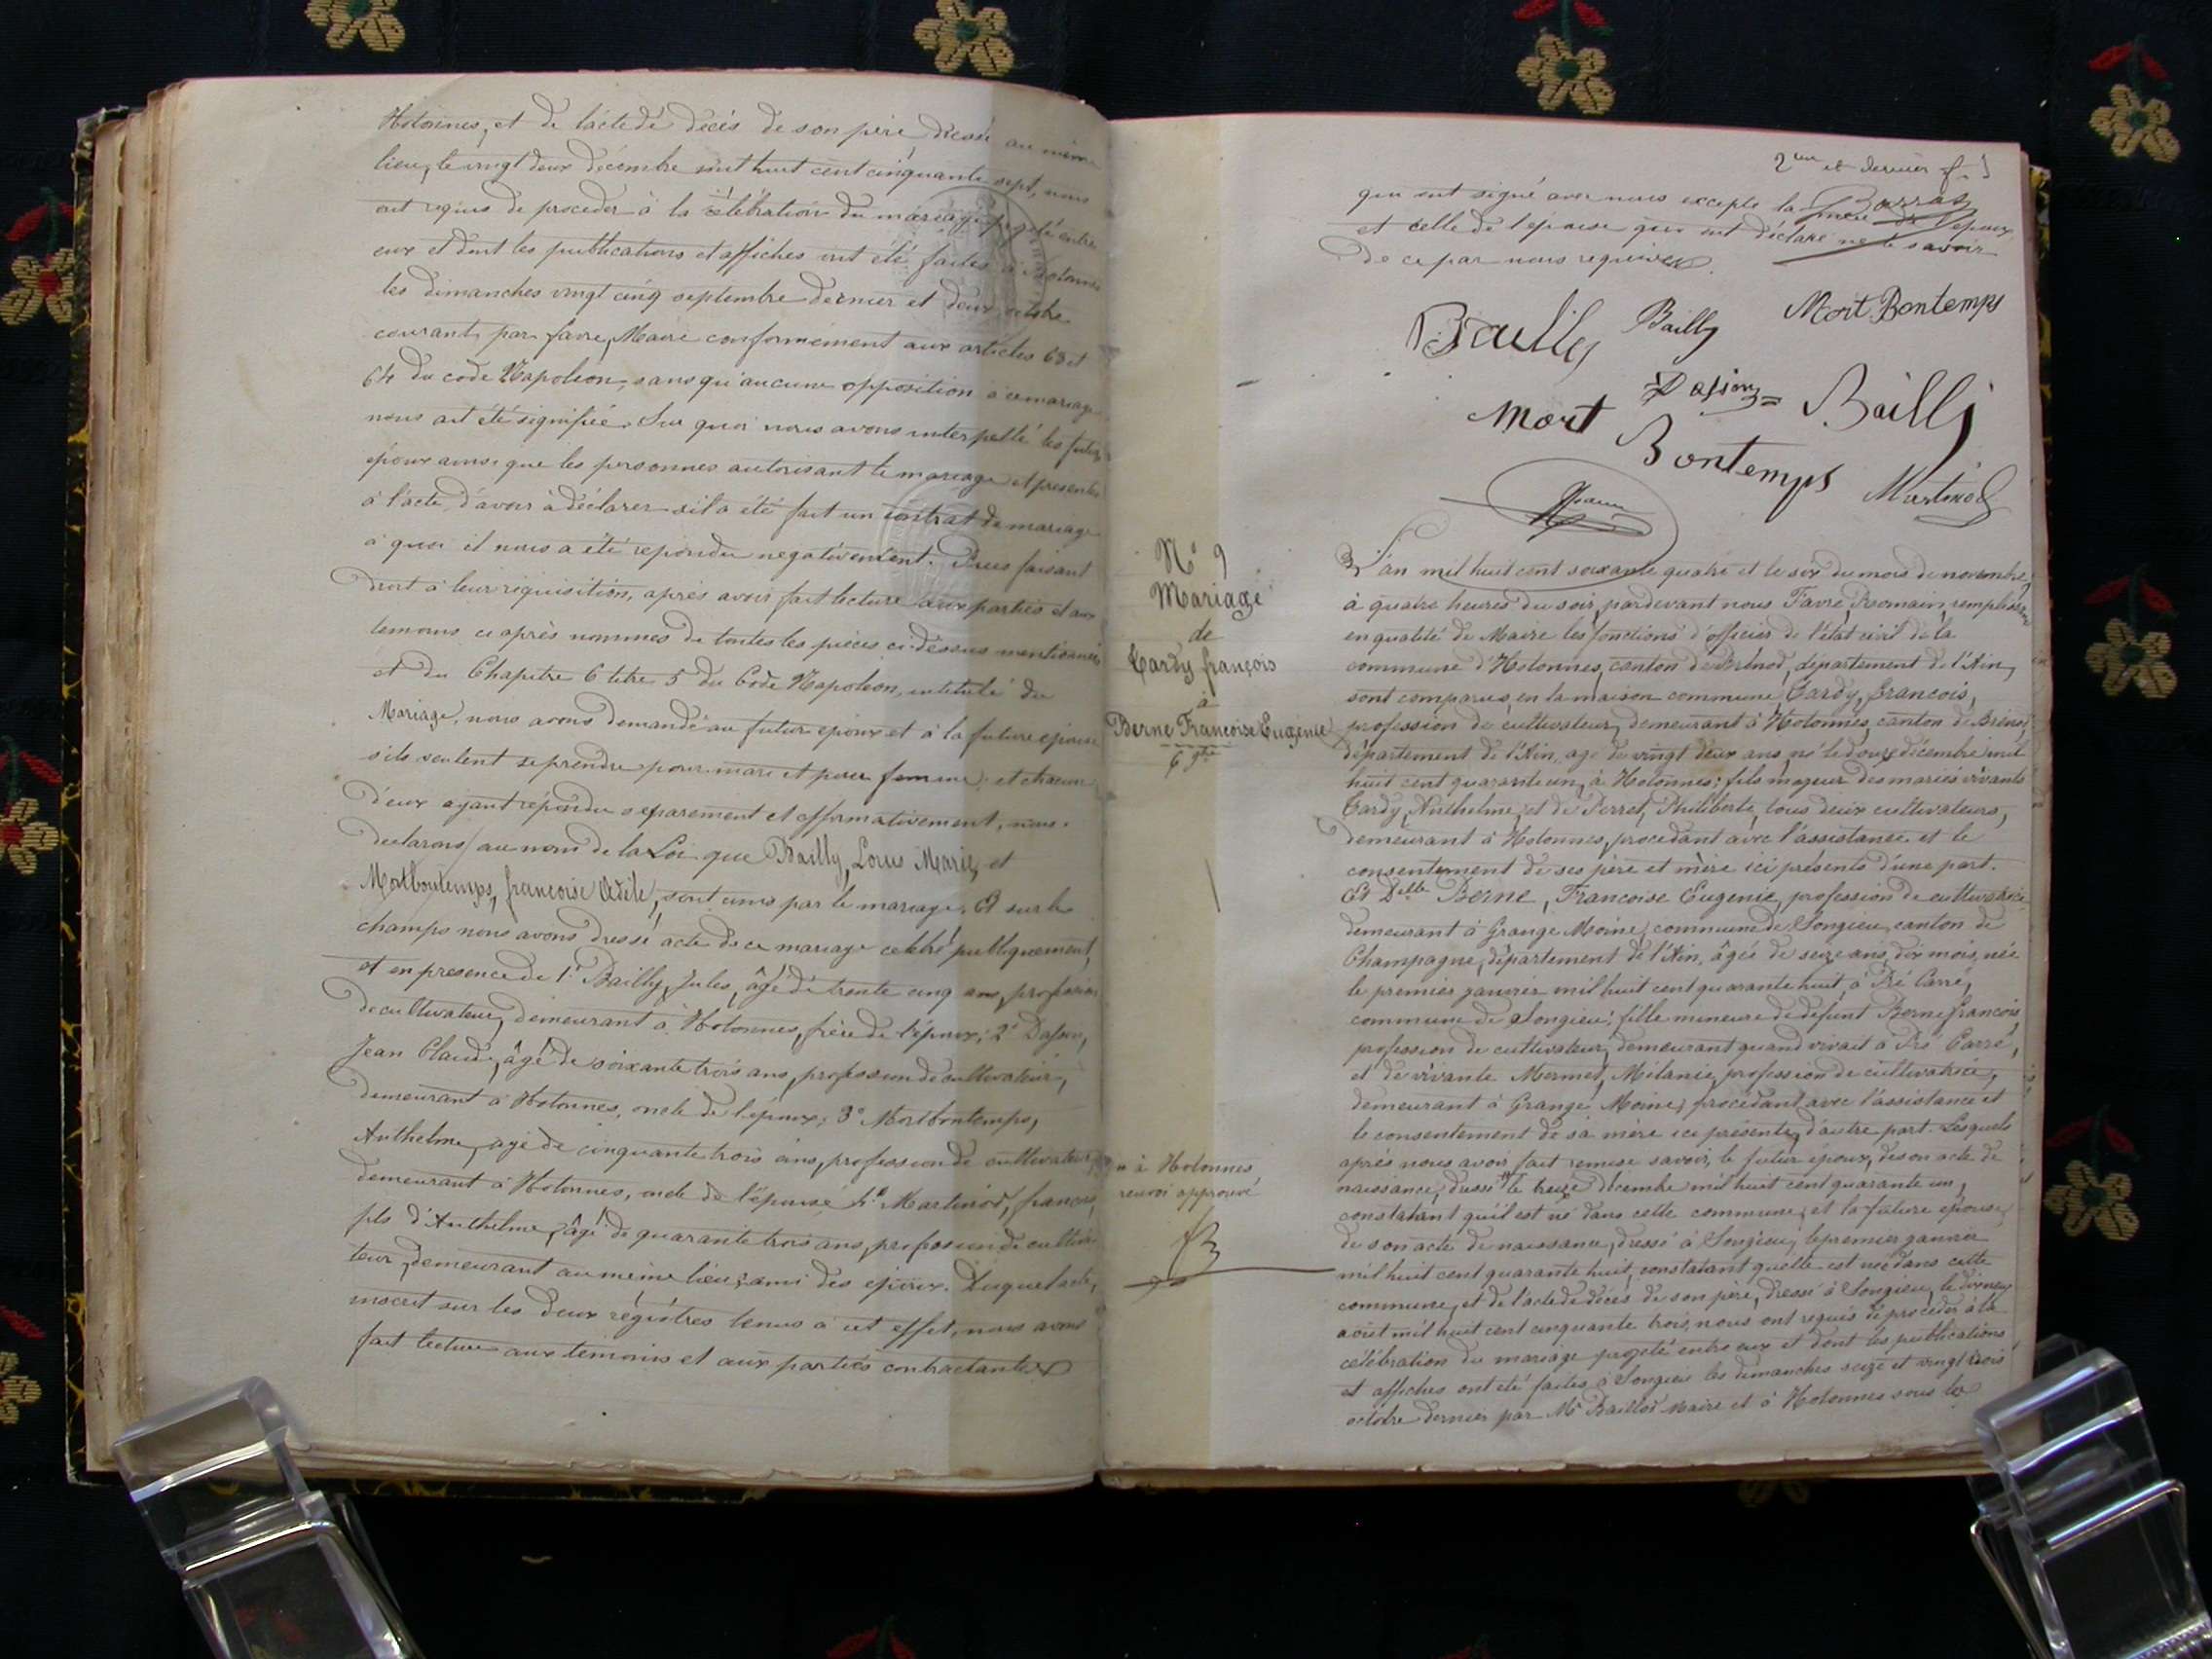 Hotonnes, et de l'acte de décès de son père, dressé au même
lieu, le vingt deux décembre mil huit cent cinquante sept, nous
ont requis de proceder à la célébration du mariage projeté entre
eux et dont les publications et affiches ont été faites à Hotonnes
les dimanches vingt cinq septembre dernier et deux octobre
courant, par favre, Maire conformément aux articles 63 et
64 du code Napoleon, sans qu'aucune opposition à ce mariage
nous ait été signifiée. Sur quoi nous avons interpellé les futurs
époux ainsi que les personnes autorisant le mariage et présentes
à l'acte, d'avoir à déclarer s'il a été fait un contrat de mariage
à quoi il nous a été repondu negativement. Puis faisant
droit à leur réquisition, après avoir fait lecture aux parties et aux
temoins ci après nommés de toutes les pièces ci-dessus mentionnées
et du Chapitre 6 titre 5 du Code Napoleon, intitulé du
Mariage, nous avons demandé au futur epoux et à la future epouse
s'ils veulent se prendre pour mari et pour femme; et chacun
d'eux ayant répondu separement et affirmativement, nous
declarons au nom de la Loi que Bailly, Louis Marie, et
Mortbontemps, françoise Adèle, sont unis par le mariage. Et sur le
champs nous avons dressé acte de ce mariage celebré publiquement,
et en presence de 1° Bailly, Jules, âgé de trente cinq ans, profession
de cultivateur, demeurant à Hotonnes, frère de l'époux; 2°
Jean Claude, âgé de soixante trois ans, profession de cultivateur,
demeurant à Hotonnes, oncle de l'époux; 3° Mortbontemps,
Anthelme, agé de cinquante trois ans, profession de cultivateur
demeurant à Hotonnes, oncle de l'épouse 4° Martinod, françois,
fils d'Anthelme, âgé de quarante trois ans, profession de cultiva
teur, demeurant au même lieu, ami des epoux. Duquel acte,
inscrit sur les deux régistres tenus à cet effet, nous avons
fait lecture aux temoins et aux parties contractantes
2eme et dernier f.
qui ont signé avec nous excepté la mère de l'époux
et celle de l'épouse qui ont déclaré ne le savoir
de ce par nous requises.
Bailly Bailly Mort Bontemps
Mort Bailly
Bontemps Martinod
N° 9
Mariage
de
Tardy françois
à
Berne Francoise Eugenie
L'an mil huit cent soixante quatre et le six du mois de novembre,
à quatre heures du soir, pardevant nous Favre, Romain, remplissant
en qualité de Maire les fonctions d'officier de l'état civil de la
commune d'Hotonnes, canton de Brénod, département de l'Ain,
sont comparus, en la maison commune, Tardy, françois,
profession de cultivateur, demeurant à Hotonnes, canton de Brénod
département de l'Ain, agé de vingt deux ans, né le douze décembre mil
huit cent quarante un, à Hotonnes; fils majeur des mariés vivants
Tardy, Anthelme, et de Perret, Philiberte, tous deux cultivateurs,
demeurant à Hotonnes, procédant avec l'assistance et le
consentement de ses père et mère ici présents d'une part.
Et Delle Berne, Francoise Eugenie, profession de cultivatrice
demeurant à Grange Moine, commune de Songieu, canton de
Champagne, département de l'Ain, âgée de seize ans, dix mois, née
le premier janvier mil huit cent quarante huit, à Pré Carré,
commune de Songieu; fille mineure de défunt Berne françois,
profession de cultivateur, demeurant quand vivait à Pré Carré,
et de vivante Mermet, Mélanie, profession de cultivatrice,
demeurant à Grange Moine, procédant avec l'assistance et
le consentement de sa mère ici présente, d'autre part. Lesquels
après nous avoir fait remise savoir, le futur époux, de son acte de
naissance, dressé le treize décembre mil huit cent quarante un,
constatant qu'il est né dans cette commune, et la future épouse,
de son acte de naissance, dressé à Songieu, le premier janvier
mil huit cent quarante huit, constatant qu'elle est née dans cette
commune, et de l'acte de décès de son père, dressé à Songieu, le dix neuf
août mil huit cent cinquante trois, nous ont requis de procéder à la
célébration du mariage projeté entre eux et dont les publications
et affiches ont été faites à Songieu les dimanches seize et vingt trois
octobre dernier par Mr Baillod maire et à Hotonnes sous les
à Hotonnes
renvoi approuvé